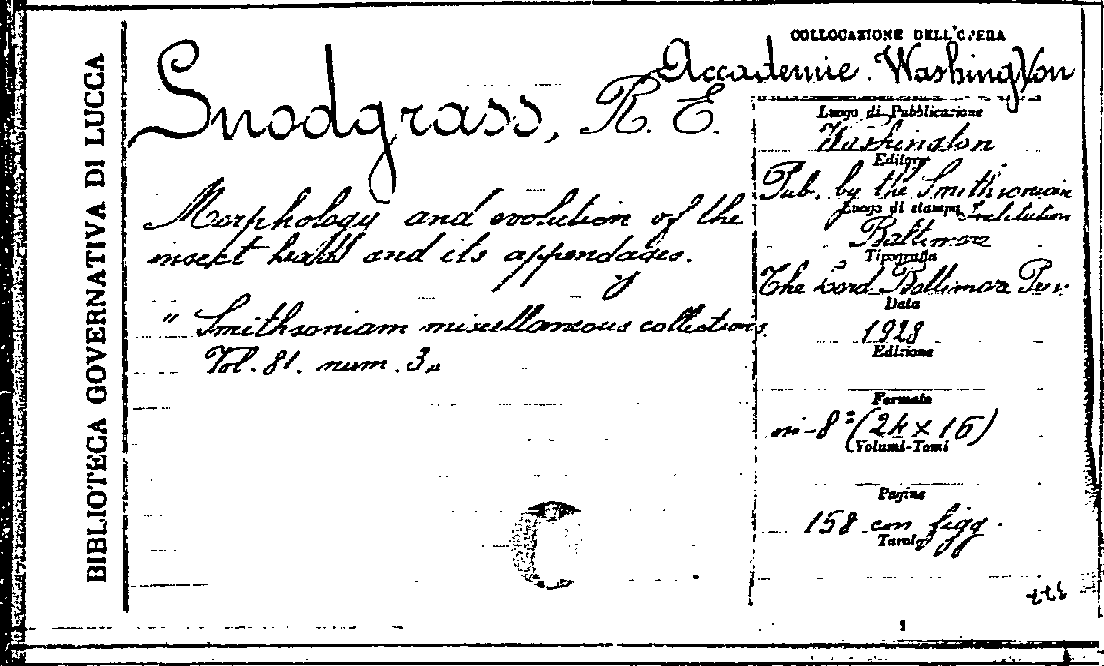 BIBLIOTECA GOVERNATIVA DI LUCCA
COLLOCAZIONE DELL'OPERA
Accademie. Washington
Snodgrass, R. E.
Morphology and evolution of the
insect head and its appendages.
" Smithsoniam miscellaneous collections.
Vol. 81. num. 3„
Luogo di Pubblicazione
Washington
Editore
Pub. by the Smithsonian
Luogo di stampa Institution
Baltimore
Tipografia
The Lord Baltimore Pr.
Data
1928
Edizione
Formato
in-8° (24 x 16)
Volumi-Tomi
Pagine
158 con figg.
Tavole
1